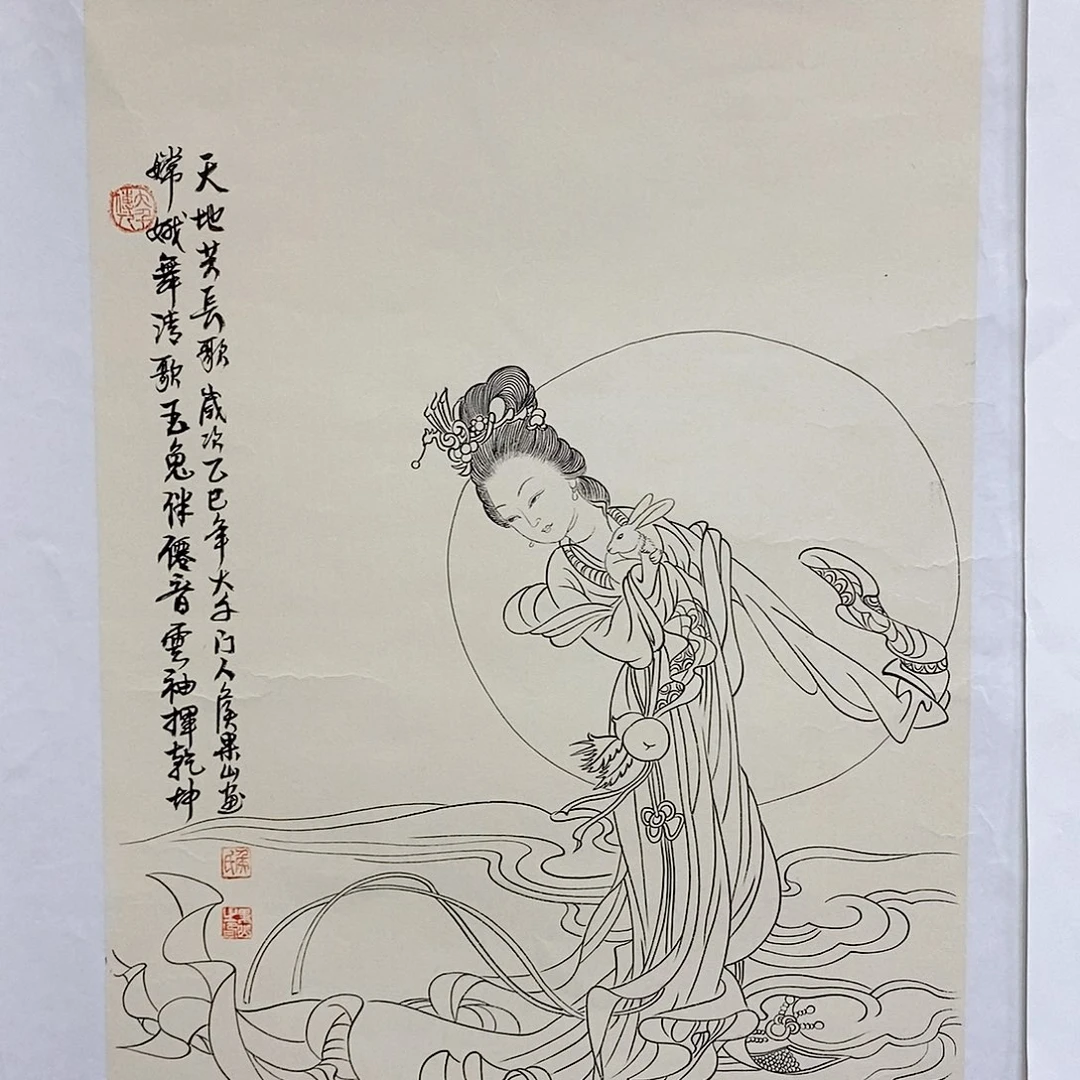 嫦娥舞清歌玉兔伴僊音雲袖揮乾坤
天地共長歌歲次乙巳年大千门人侯果山画
侯氏